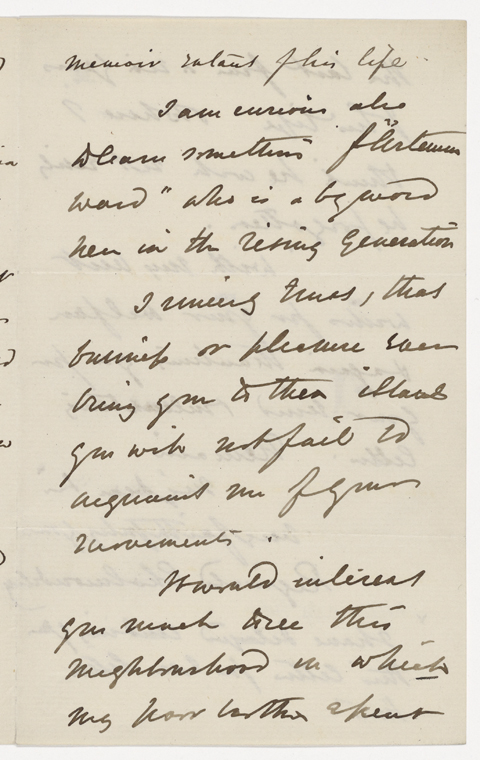 memoir extant of his life
I am curious also
to learn something of "Artemus
Ward" who is a byword
here in the rising generation
I sincerely trust, that
business or pleasure ever
bring you to these islands
you will not fail to
acquaint me of your
movements.
It would interest
you much to see this
neighbourhood in which
my poor brother spent